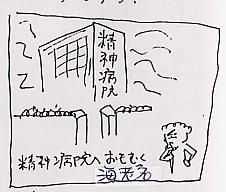 精神病院
精神病院へおもむく
海老名